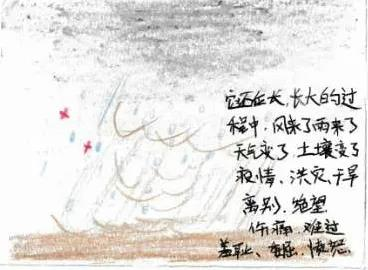 它还在长,长大的过
程中,风来了雨来了
天气变了,土壤变了
洪灾、干旱
离别、绝望
伤痛、难过
羞耻、委屈、愤怒